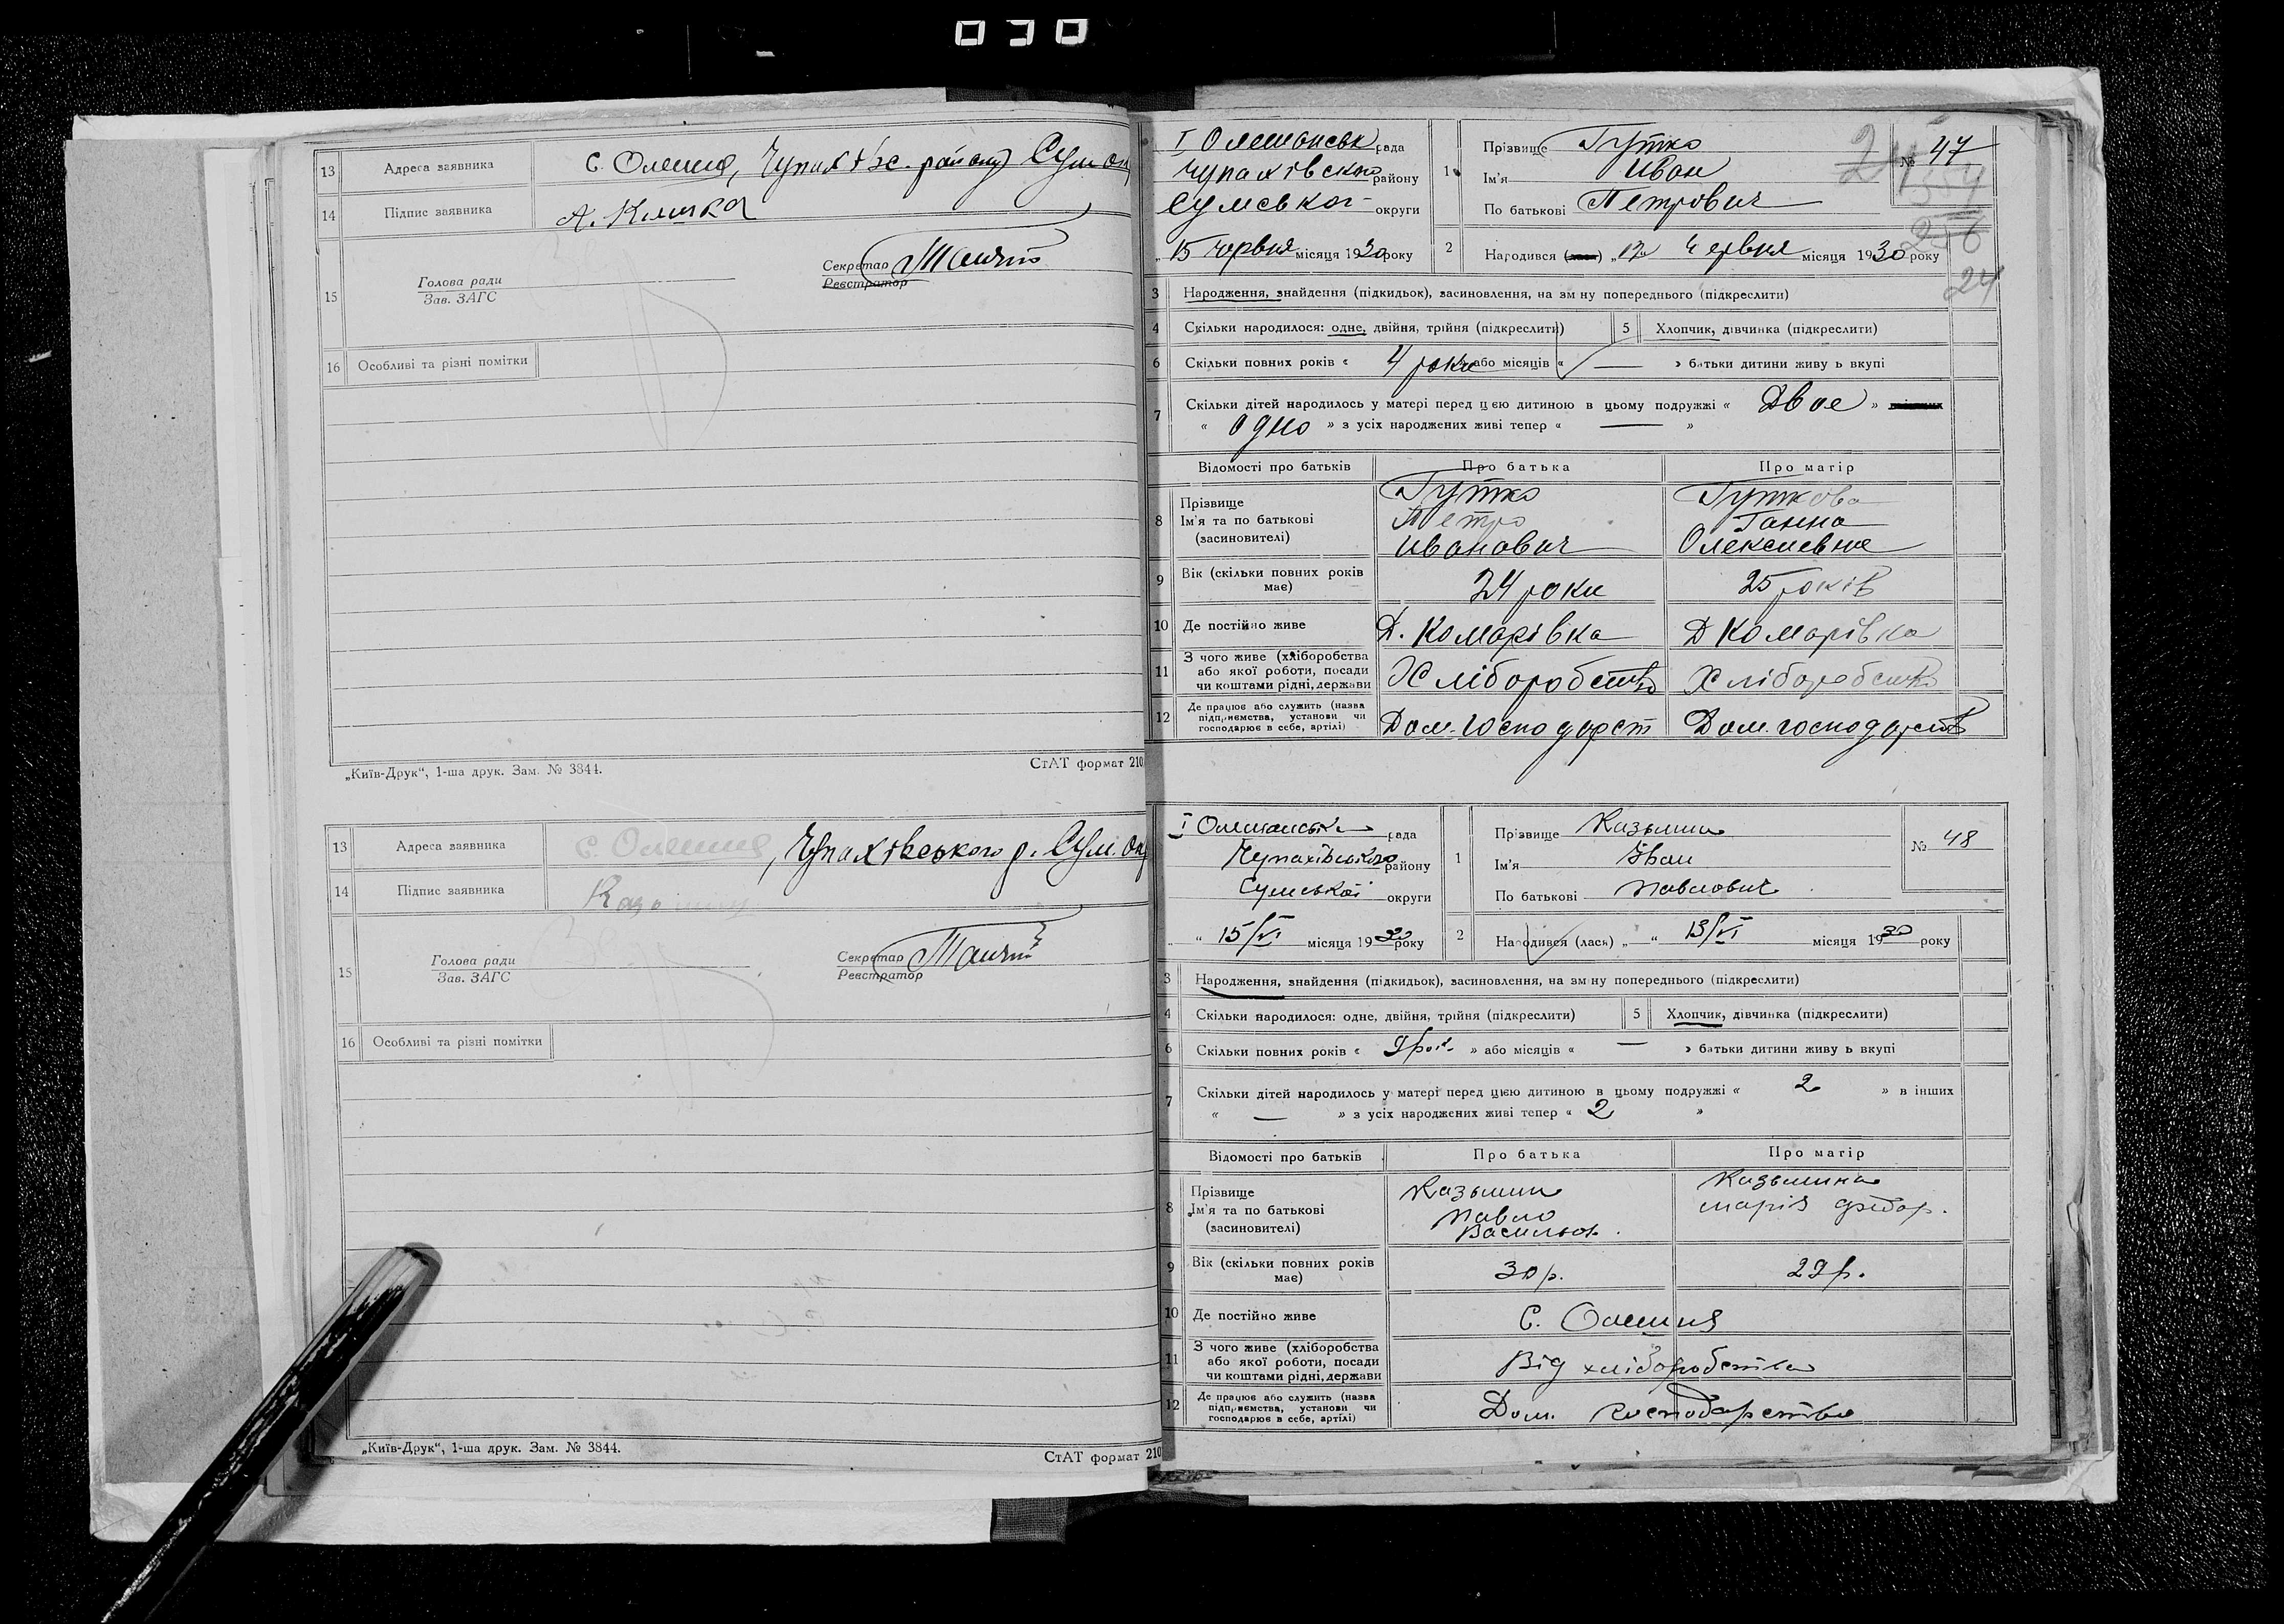 030
13 Адреса заявника с. Олешня, Чупахівс. району Сум ок
14 Підпис заявника А. Клишка
15 Голова ради
Зав. ЗАГС
Секретар
Реєстратор
16 Особливі та різні помітки
„Київ-Друк“, 1-ша друк. Зам. № 3844. СтАТ формат 210
13 Адреса заявника с. Олешня, Чупахівського р. Сум. Ок
14 Підпис заявника
15 Голова ради
Зав. ЗАГС
Секретар
Реєстратор
16 Особливі та різні помітки
„Київ-Друк“, 1-ша друк. Зам. № 3844. СтАТ формат 210
І Олешанськ рада
Чупахівского району
Сумської округи
„ 15 червня місяця 1930 року
1 Прізвище Гутко
Ім'я Иван
По батькові Петрович
№ 47
24
256
24
2 Народився (лась) „ 12 червня місяця 1930 року
3 Народження, знайдення (підкидьок), засиновлення, на зм ну попереднього (підкреслити)
4 Скільки народилося: одне, двійня, трійня (підкреслити) 5 Хлопчик, дівчинка (підкреслити)
6 Скільки повних років « 4 роки або місяців « — » батьки дитини живу ь вкупі
7 Скільки дітей народилось у матері перед цією дитиною в цьому подружжі « Двое »
« одно » з усіх народжених живі тепер « — »
Відомості про батьків Про батька Про матір
8 Прізвище Гутко Гуткова
Ім'я та по батькові Петро Ганна
(засиновителі) Иванович Олексиевна
9 Вік (скільки повних років має) 24 роки 25 років
10 Де постійно живе Д. Комарівка Д Комарівка
11 З чого живе (хліборобства
або якої роботи, посади
чи коштами рідні, держави Хліборобство Хліборобство
12 Де працює або служить (назва
підприємства, установи чи
господарює в себе, артілі) Дом. господарст Дом. господарств
І Олешанська рада
Чупахівського району
Сумської округи
„ “ 15/VI місяця 1930 року
1 Прізвище Казьмин
Ім'я Іван
По батькові Павлович
№ 48
2 Народився (лась) „ “ 13/VI місяця 1930 року
3 Народження, знайдення (підкидьок), засиновлення, на зм ну попереднього (підкреслити)
4 Скільки народилося: одне, двійня, трійня (підкреслити) 5 Хлопчик, дівчинка (підкреслити)
6 Скільки повних років « 9 рок. » або місяців « — » батьки дитини живу ь вкупі
7 Скільки дітей народилось у матері перед цією дитиною в цьому подружжі « 2 » в інших
« — » з усіх народжених живі тепер « 2 »
Відомості про батьків Про батька Про матір
8 Прізвище Казьмин Казьмина
Ім'я та по батькові Павло Марія Федор.
(засиновителі) Васильов.
9 Вік (скільки повних років має) 30 р. 29 р.
10 Де постійно живе С. Олешня
11 З чого живе (хліборобства
або якої роботи, посади
чи коштами рідні, держави Від хліборобства
12 Де працює або служить (назва
підприємства, установи чи
господарює в себе, артілі) Дом. господарство